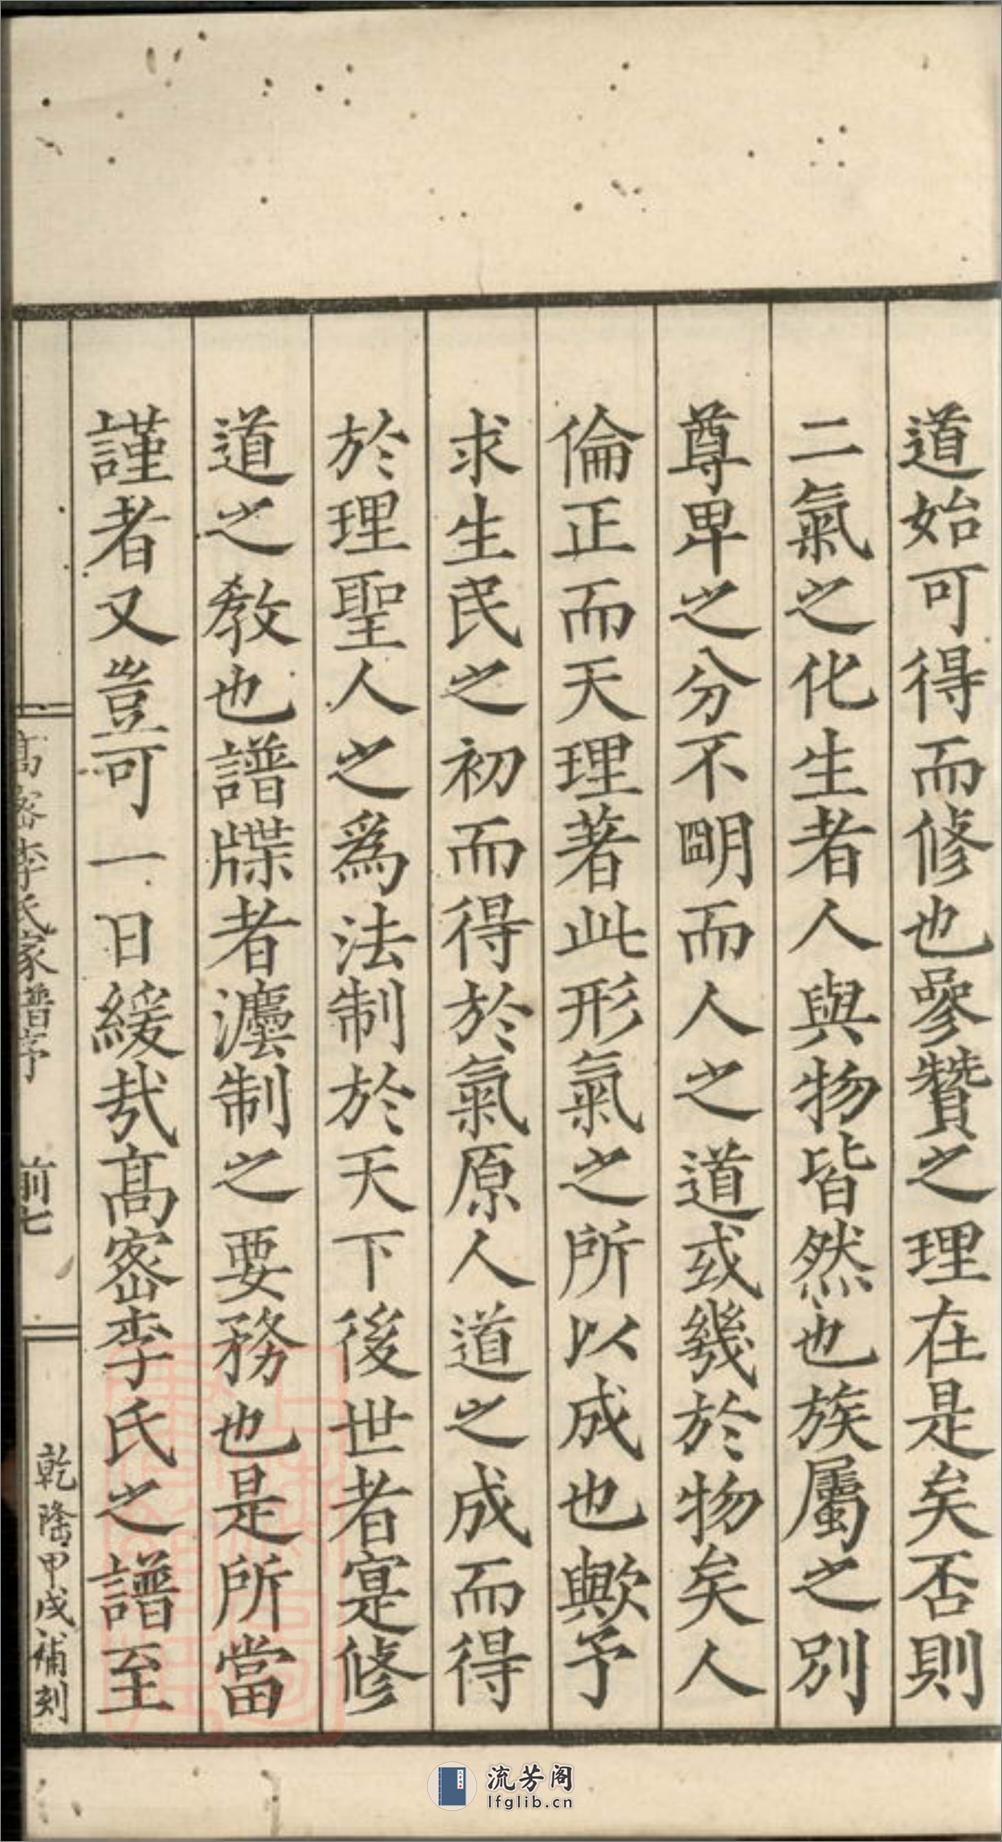 道始可得而修也參贊之理在是矣否則
二氣之化生者人與物皆然也族屬之別
尊卑之分不明而人之道或幾於物矣人
倫正而天理著此形氣之所以成也歟予
求生民之初而得於氣原人道之成而得
於理聖人之為法制於天下後世者寔修
道之教也譜牒者灋制之要務也是所當
謹者又豈可一日緩哉高密李氏之譜至
高密李氏家譜序
前七
乾隆甲戌補刻
流芳阁
lfglib.cn